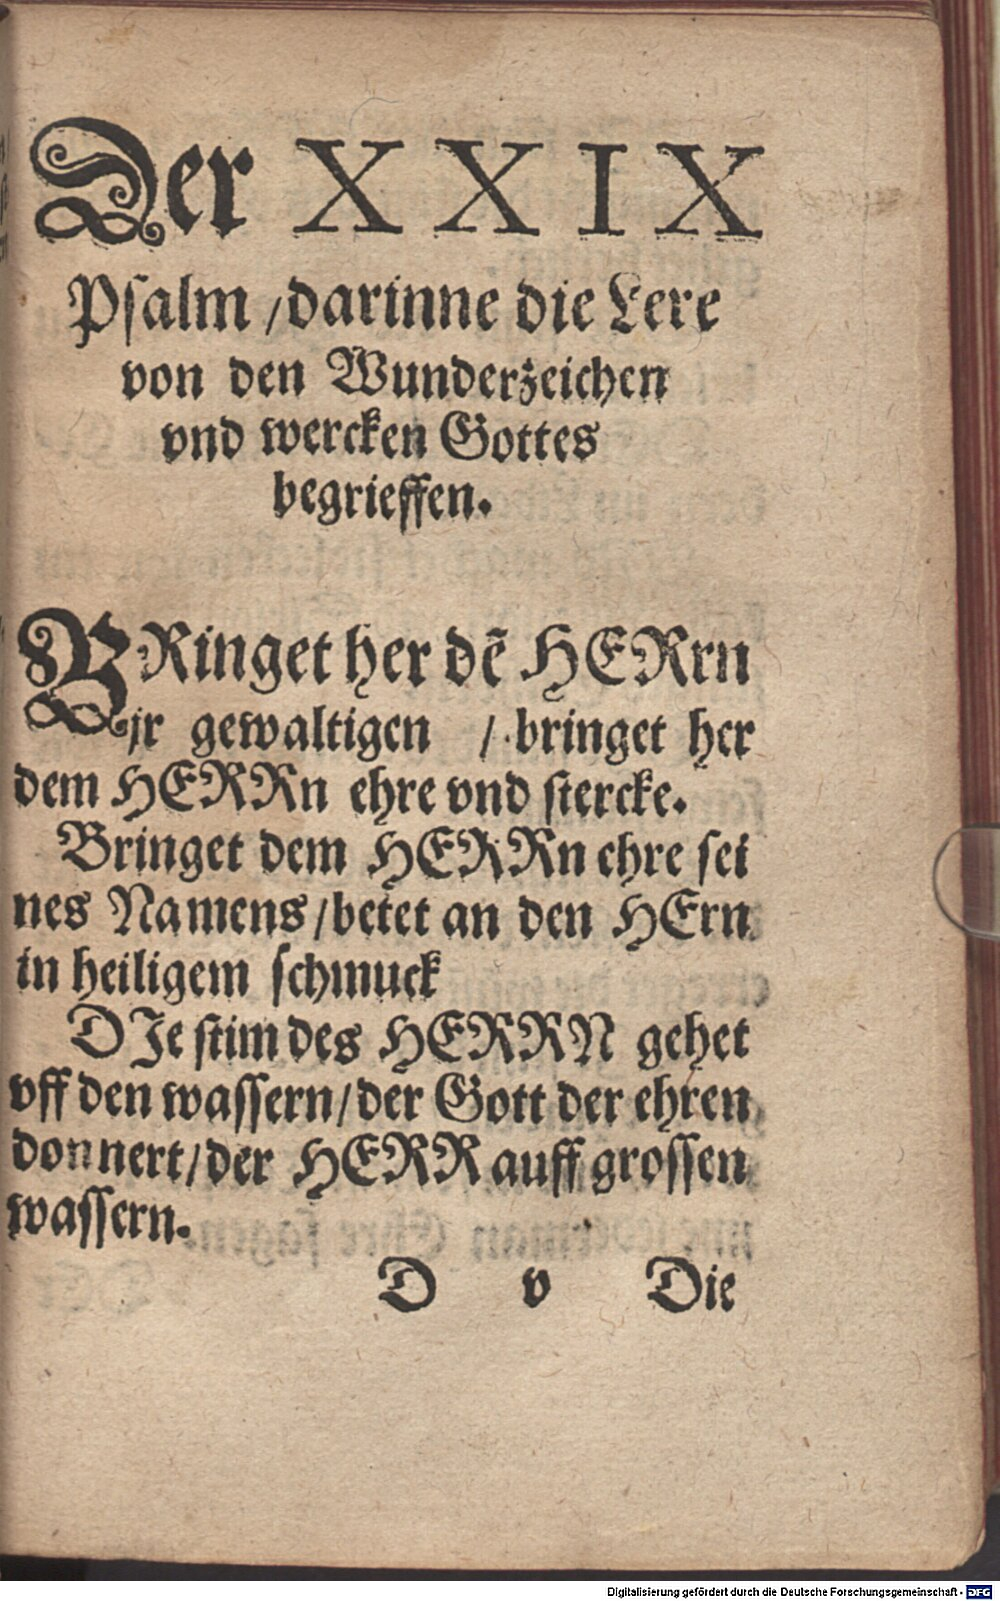 Der XXIX
Psalm /darinne die Lere
von den Wunderzeichen
vnd wercken Gottes
begrieffen.
BRinget her dē HERrn
jr gewaltigen / bringet her
dem HERRn ehre vnd stercke.
Bringet dem HERRn ehre sei
nes Namens/betet an den HErn
in heiligem schmuck
DJe stim des HERRN gehet
vff den wassern/der Gott der ehren
donnert/der HERR auff grossen
wassern.
D v Die
Digitalisierung gefördert durch die Deutsche Forschungsgemeinschaft - DFG